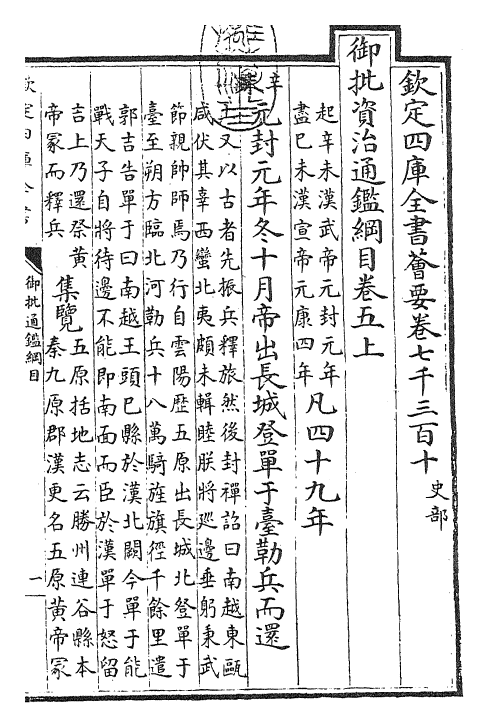 欽定四庫全書薈要卷七千三百十 史部
御批資治通鑑綱目卷五上
起辛未漢武帝元封元年
盡己未漢宣帝元康四年
凡四十九年
辛未
元封元年冬十月帝出長城登單于臺勒兵而還
上又以古者先振兵釋旅然後封禪詔曰南越東甌
咸伏其辜西蠻北夷頗未輯睦朕將廵邊垂躬秉武
節親帥師焉乃行自雲陽歷五原出長城北登單于
臺至朔方臨北河勒兵十八萬騎旌旗徑千餘里遣
郭吉告單于曰南越王頭已縣於漢北闕今單于能
戰天子自將待邊不能即南面而臣於漢單于怒留
吉上乃還祭黄
帝冢而釋兵
集覽
五原括地志云勝州連谷縣本
秦九原郡漢更名五原黄帝冢
御批通鑑綱目
一
欽定四庫全書